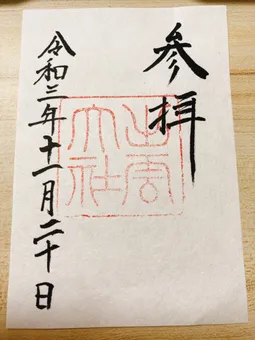 参拝
出雲
大社
令和三年十一月二十日